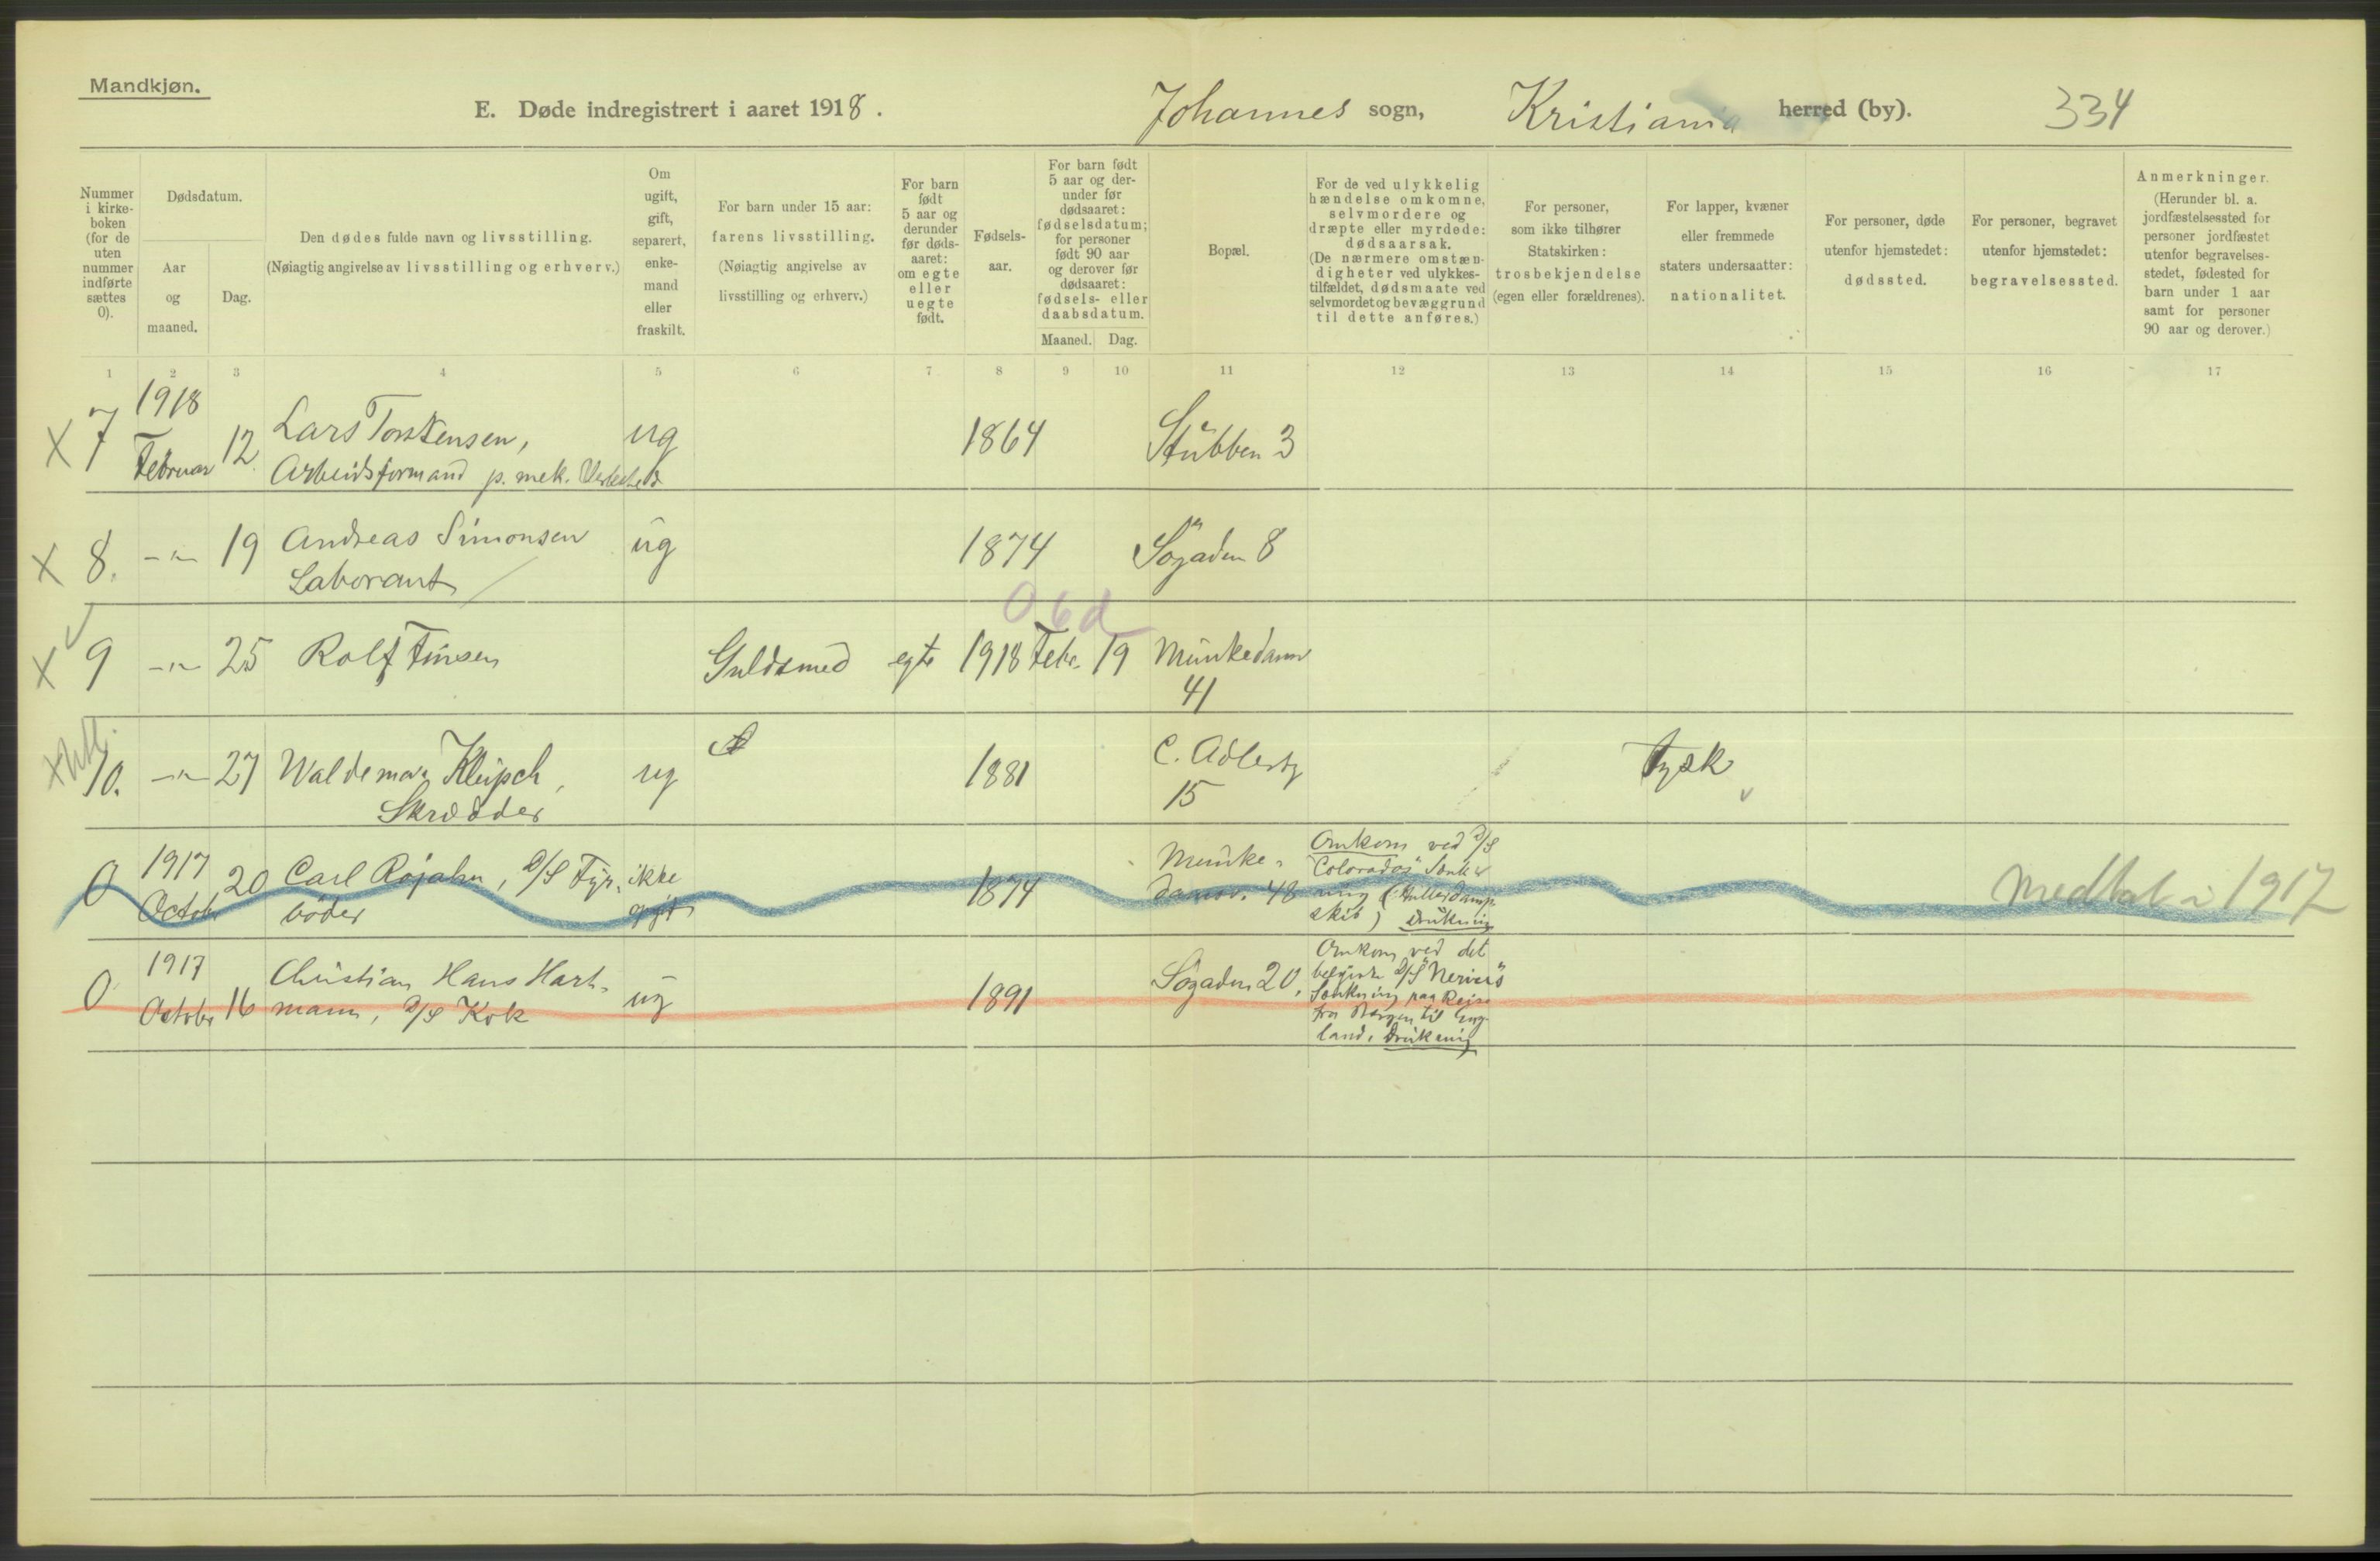 Mandkjøn.
E. Døde indregistrert i aaret 1918.
Johannes sogn, Kristiania herred (by).
334
Nummer i kirke-boken (for de uten nummer indførte sættes 0).
Dødsdatum.
Aar og maaned.
Dag.
Den dødes fulde navn og livsstilling.
(Nøiagtig angivelse av livsstilling og erhverv.)
Om ugift, gift, separert, enke-mand eller fraskilt.
For barn under 15 aar: farens livsstilling. (Nøiagtig angivelse av livsstilling og erhverv.)
For barn født 5 aar og derunder før døds-aaret: om egte eller uegte født.
Fødsels-aar.
For barn født 5 aar og der-under før dødsaaret: fødselsdatum; for personer født 90 aar og derover før dødsaaret: fødsels- eller daabsdatum.
Maaned. Dag.
Bopæl.
For de ved ulykkelig hændelse omkomne, selvmordere og dræpte eller myrdede: dødsaarsak. (De nærmere omstæn-digheter ved ulykkes-tilfældet, dødsmaate ved selvmordet og bevæggrund til dette anføres.)
For personer, som ikke tilhører Statskirken: trosbekjendelse (egen eller forældrenes).
For lapper, kvæner eller fremmede staters undersaatter: nationalitet.
For personer, døde utenfor hjemstedet: dødssted.
For personer, begravet utenfor hjemstedet: begravelsessted.
Anmerkninger. (Herunder bl. a. jordfæstelsessted for personer jordfæstet utenfor begravelses-stedet, fødested for barn under 1 aar samt for personer 90 aar og derover.)
1 2 3 4 5 6 7 8 9 10 11 12 13 14 15 16 17
1918
x 7 Februar 12 Lars Torstensen, ug 1864 Stubben 3
Arbeidsformand p. mek.
x 8. -"- 19 Andreas Simonsen ug 1874 Søgaden 8
Laborant
0 6 d
x 9 -"- 25 Rolf Finsen Guldsmed egte 1918 Febr. 19 Munkedamv
41
x 10. -"- 27 Waldemar Kleipsch, ug 1881 C. Adlersg tysk
Skrædder 15
1917 Omkom ved D/S
0 October 20 Carl Røjahn, D/S Fyr- ikke 1874 Munke- "Colorados" Sænk-
bøder gift damsv. 48 ning (Hullerdamp-
skib) Drukning
Medtat i 1917
1917 Omkom ved det
0 October 16 Christian Hans Hart- ug 1891 Søgaden 20, belgiske D/S
mann, D/S Kok Sænkning paa Reise
fra Bergen til Eng-
land, Drukning